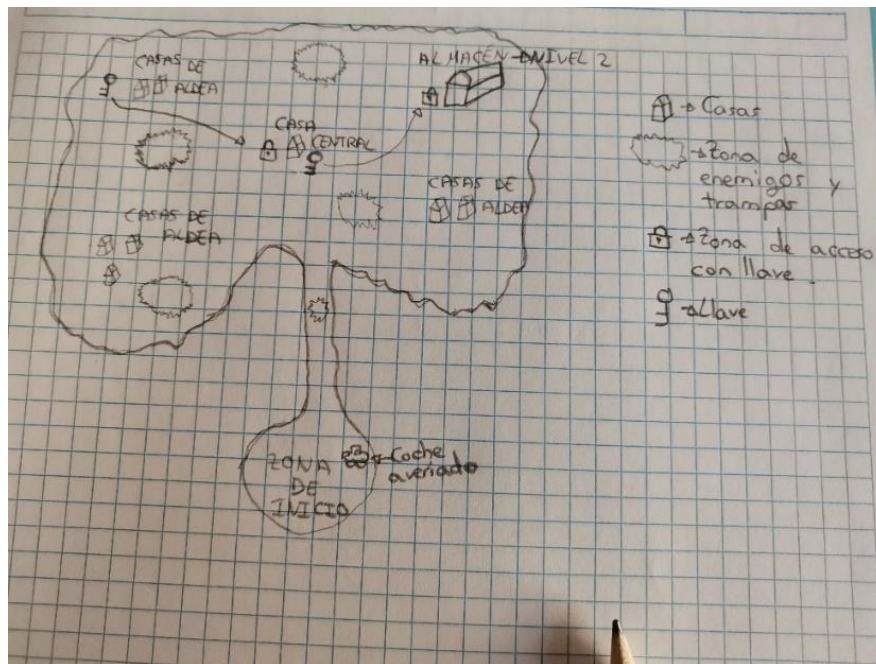 CASAS DE
ALDEA
ALMACÉN → NIVEL 2
CASA
CENTRAL
CASAS DE
ALDEA
CASAS DE
ALDEA
ZONA
DE
INICIO
Coche
averiado
→ Casas
→ Zona de
enemigos y
trampas
→ Zona de acceso
con llave.
→ Llave